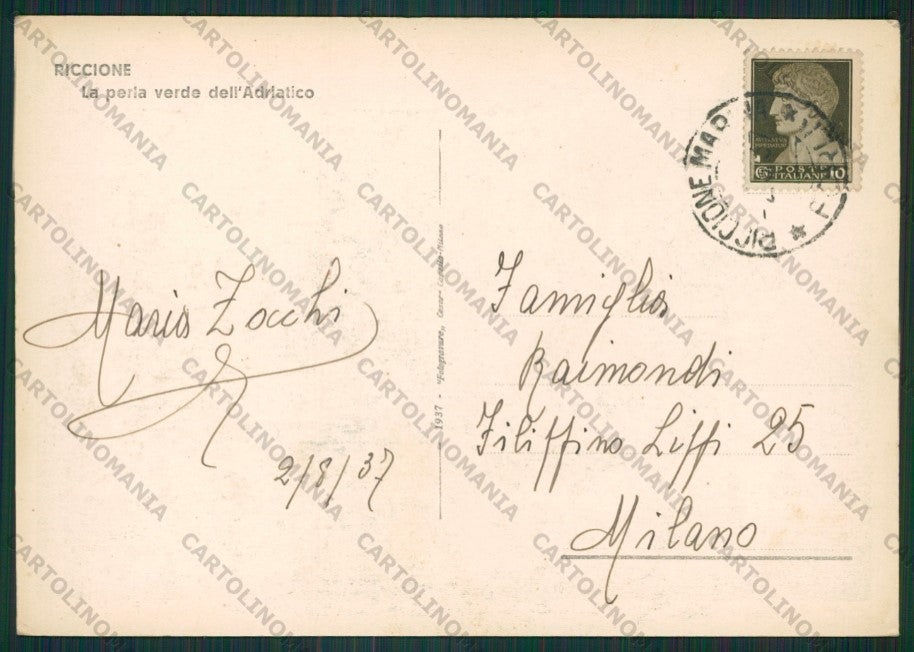 RICCIONE
La perla verde dell'Adriatico
POSTE
ITALIANE 10
RICCIONE MAR
Maria Zocchi
2/8/37
1937 - "Fotogravure"
Famiglia
Raimondi
Filippino Lippi 25
Milano
CARTOLINOMANIA